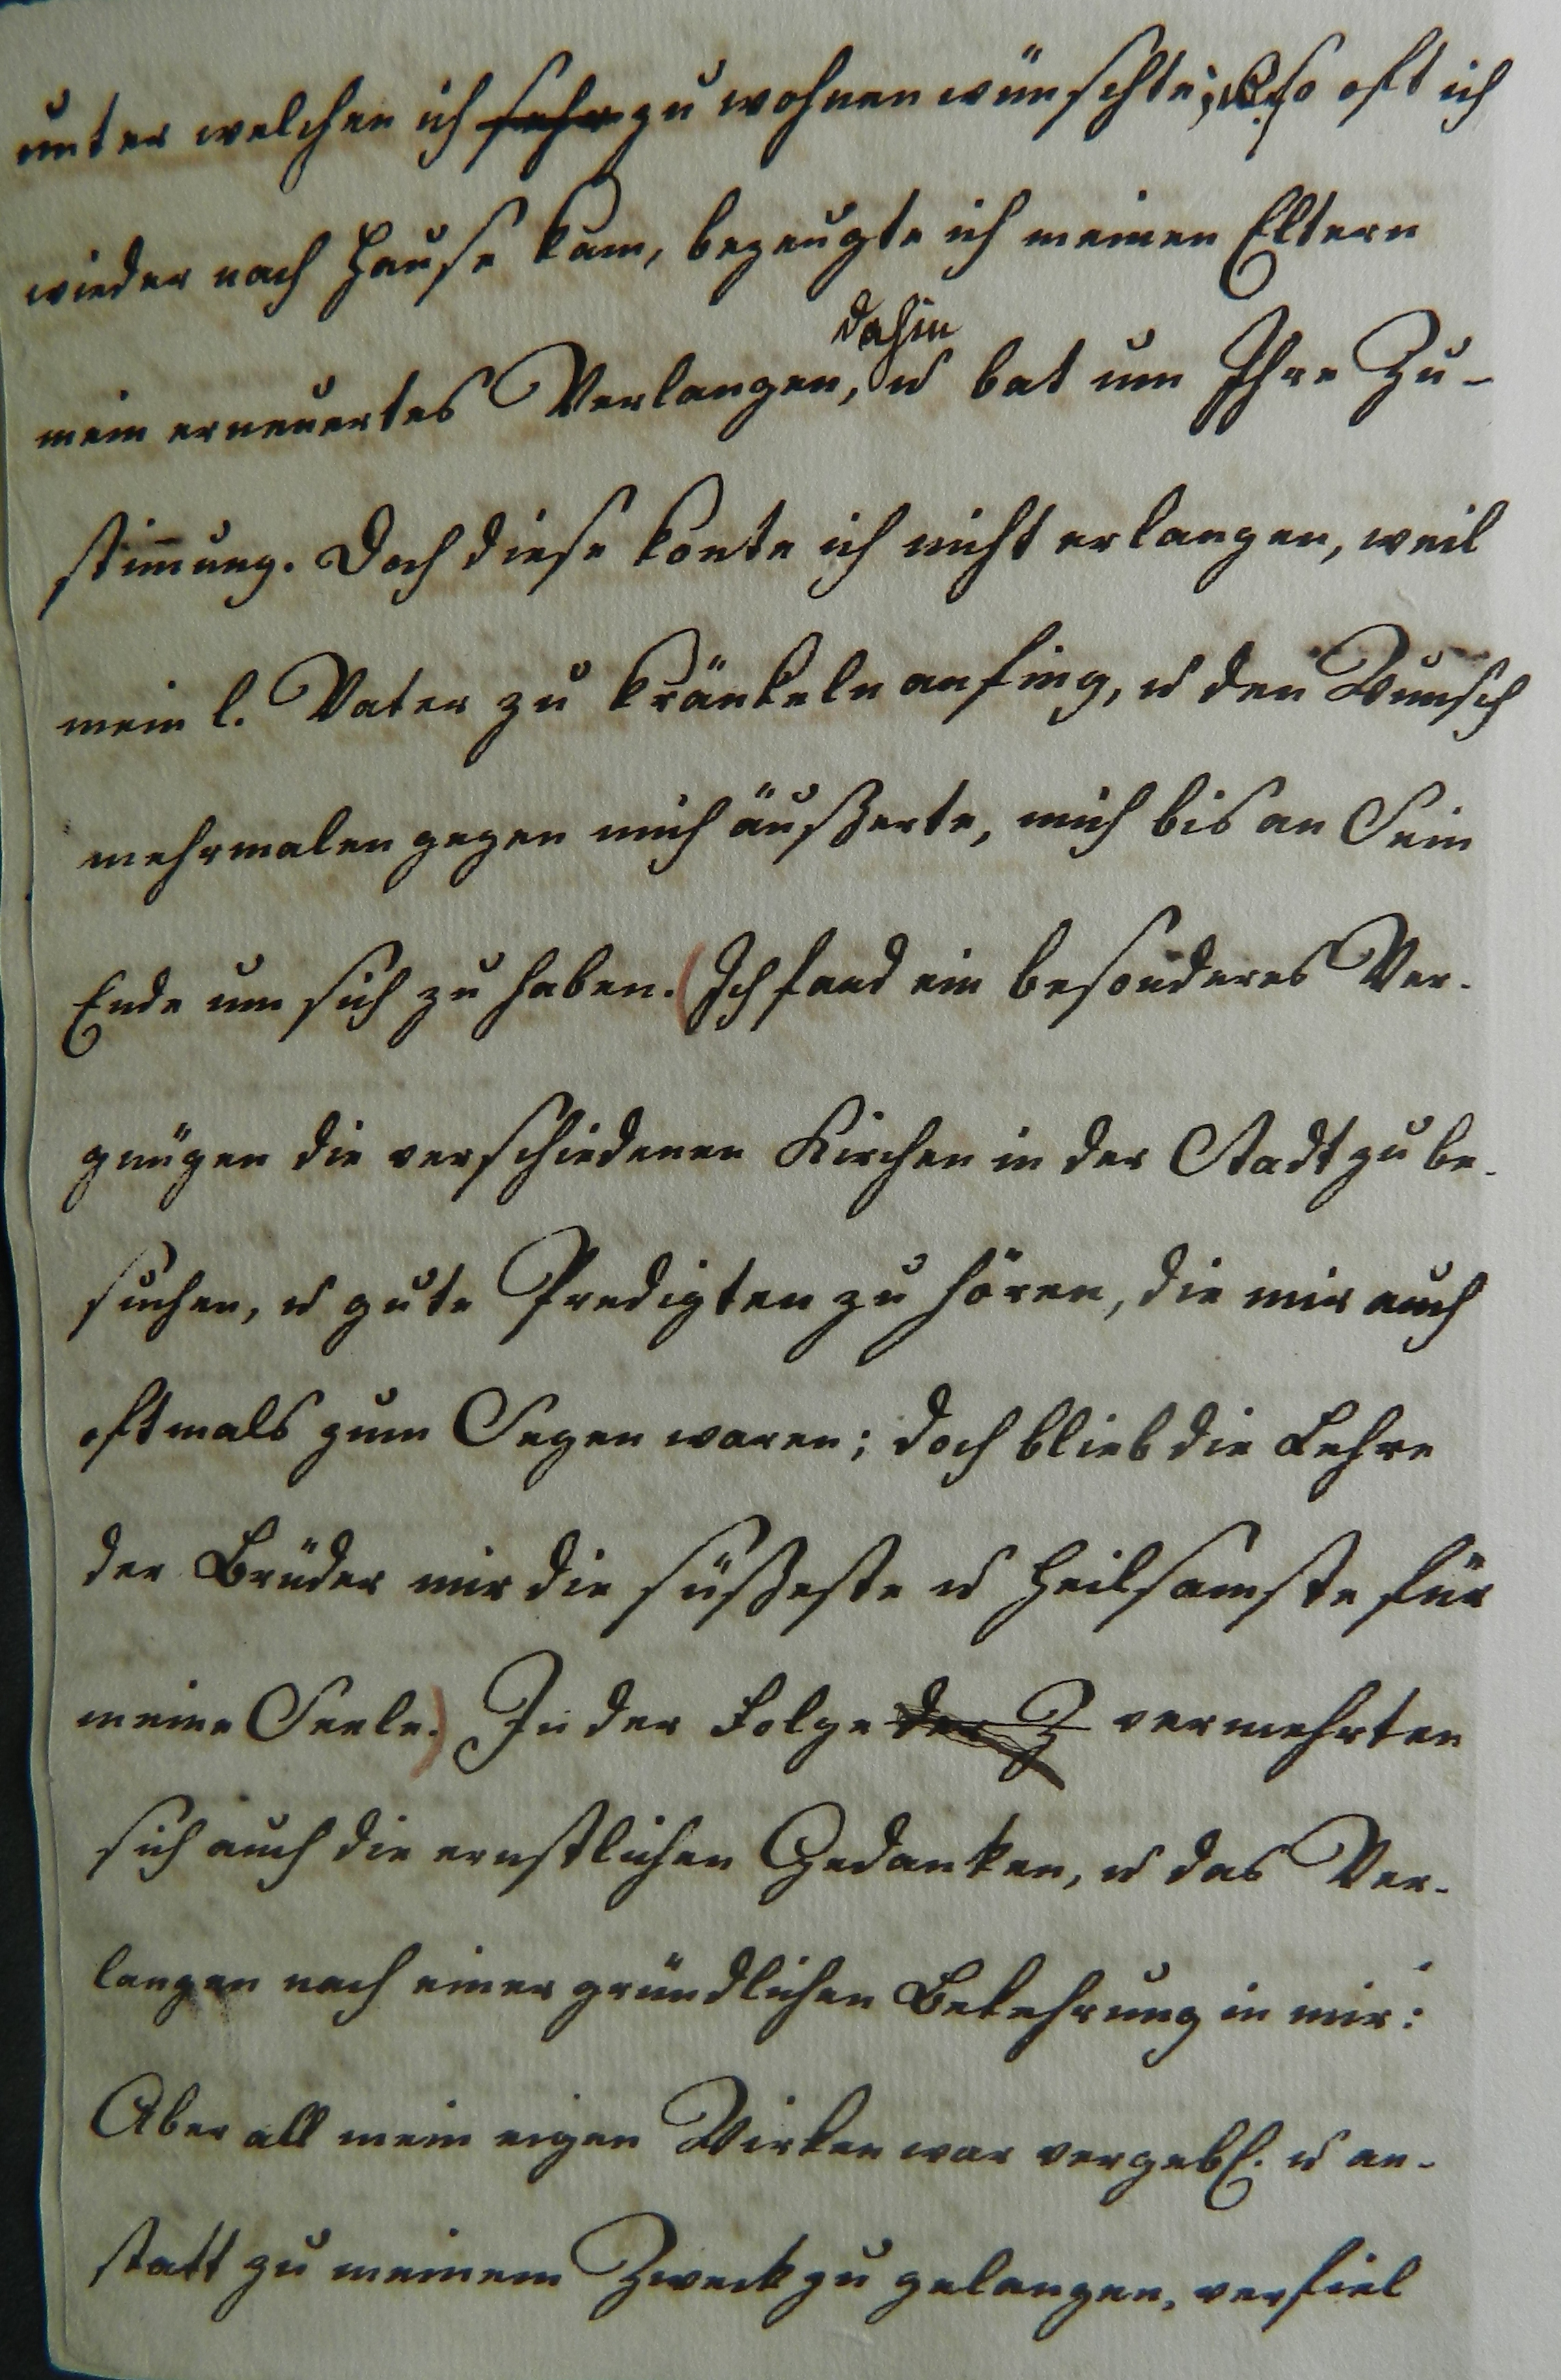 unter welchen ich sehr zu wohnen wünschte; so oft ich
wieder nach Hause kam, bezeugte ich meinen Eltern
dahin
mein erneuertes Verlangen, u bat um Ihre Zu-
stim̄ung. Doch diese konte ich nicht erlangen, weil
mein l. Vater zu kränkeln anfing, u den Wunsch
mehrmalen gegen mich äußerte, mich bis an Sein
Ende um sich zu haben. (Ich fand ein besonderes Ver-
gnügen die verschiedenen Kirchen in der Stadt zu be-
suchen, u gute Predigten zu hören, die mir auch
oftmals zum Segen waren; doch blieb die Lehre
der Brüder mir die süßeste u heilsamste für
meine Seele.) In der Folge der Z vermehrten
sich auch die ernstlichen Gedanken, u das Ver-
langen nach einer gründlichen Bekehrung in mir:
Aber all mein eigen Wirken war vergebl. u an-
statt zu meinem Zweck zu gelangen, verfiel